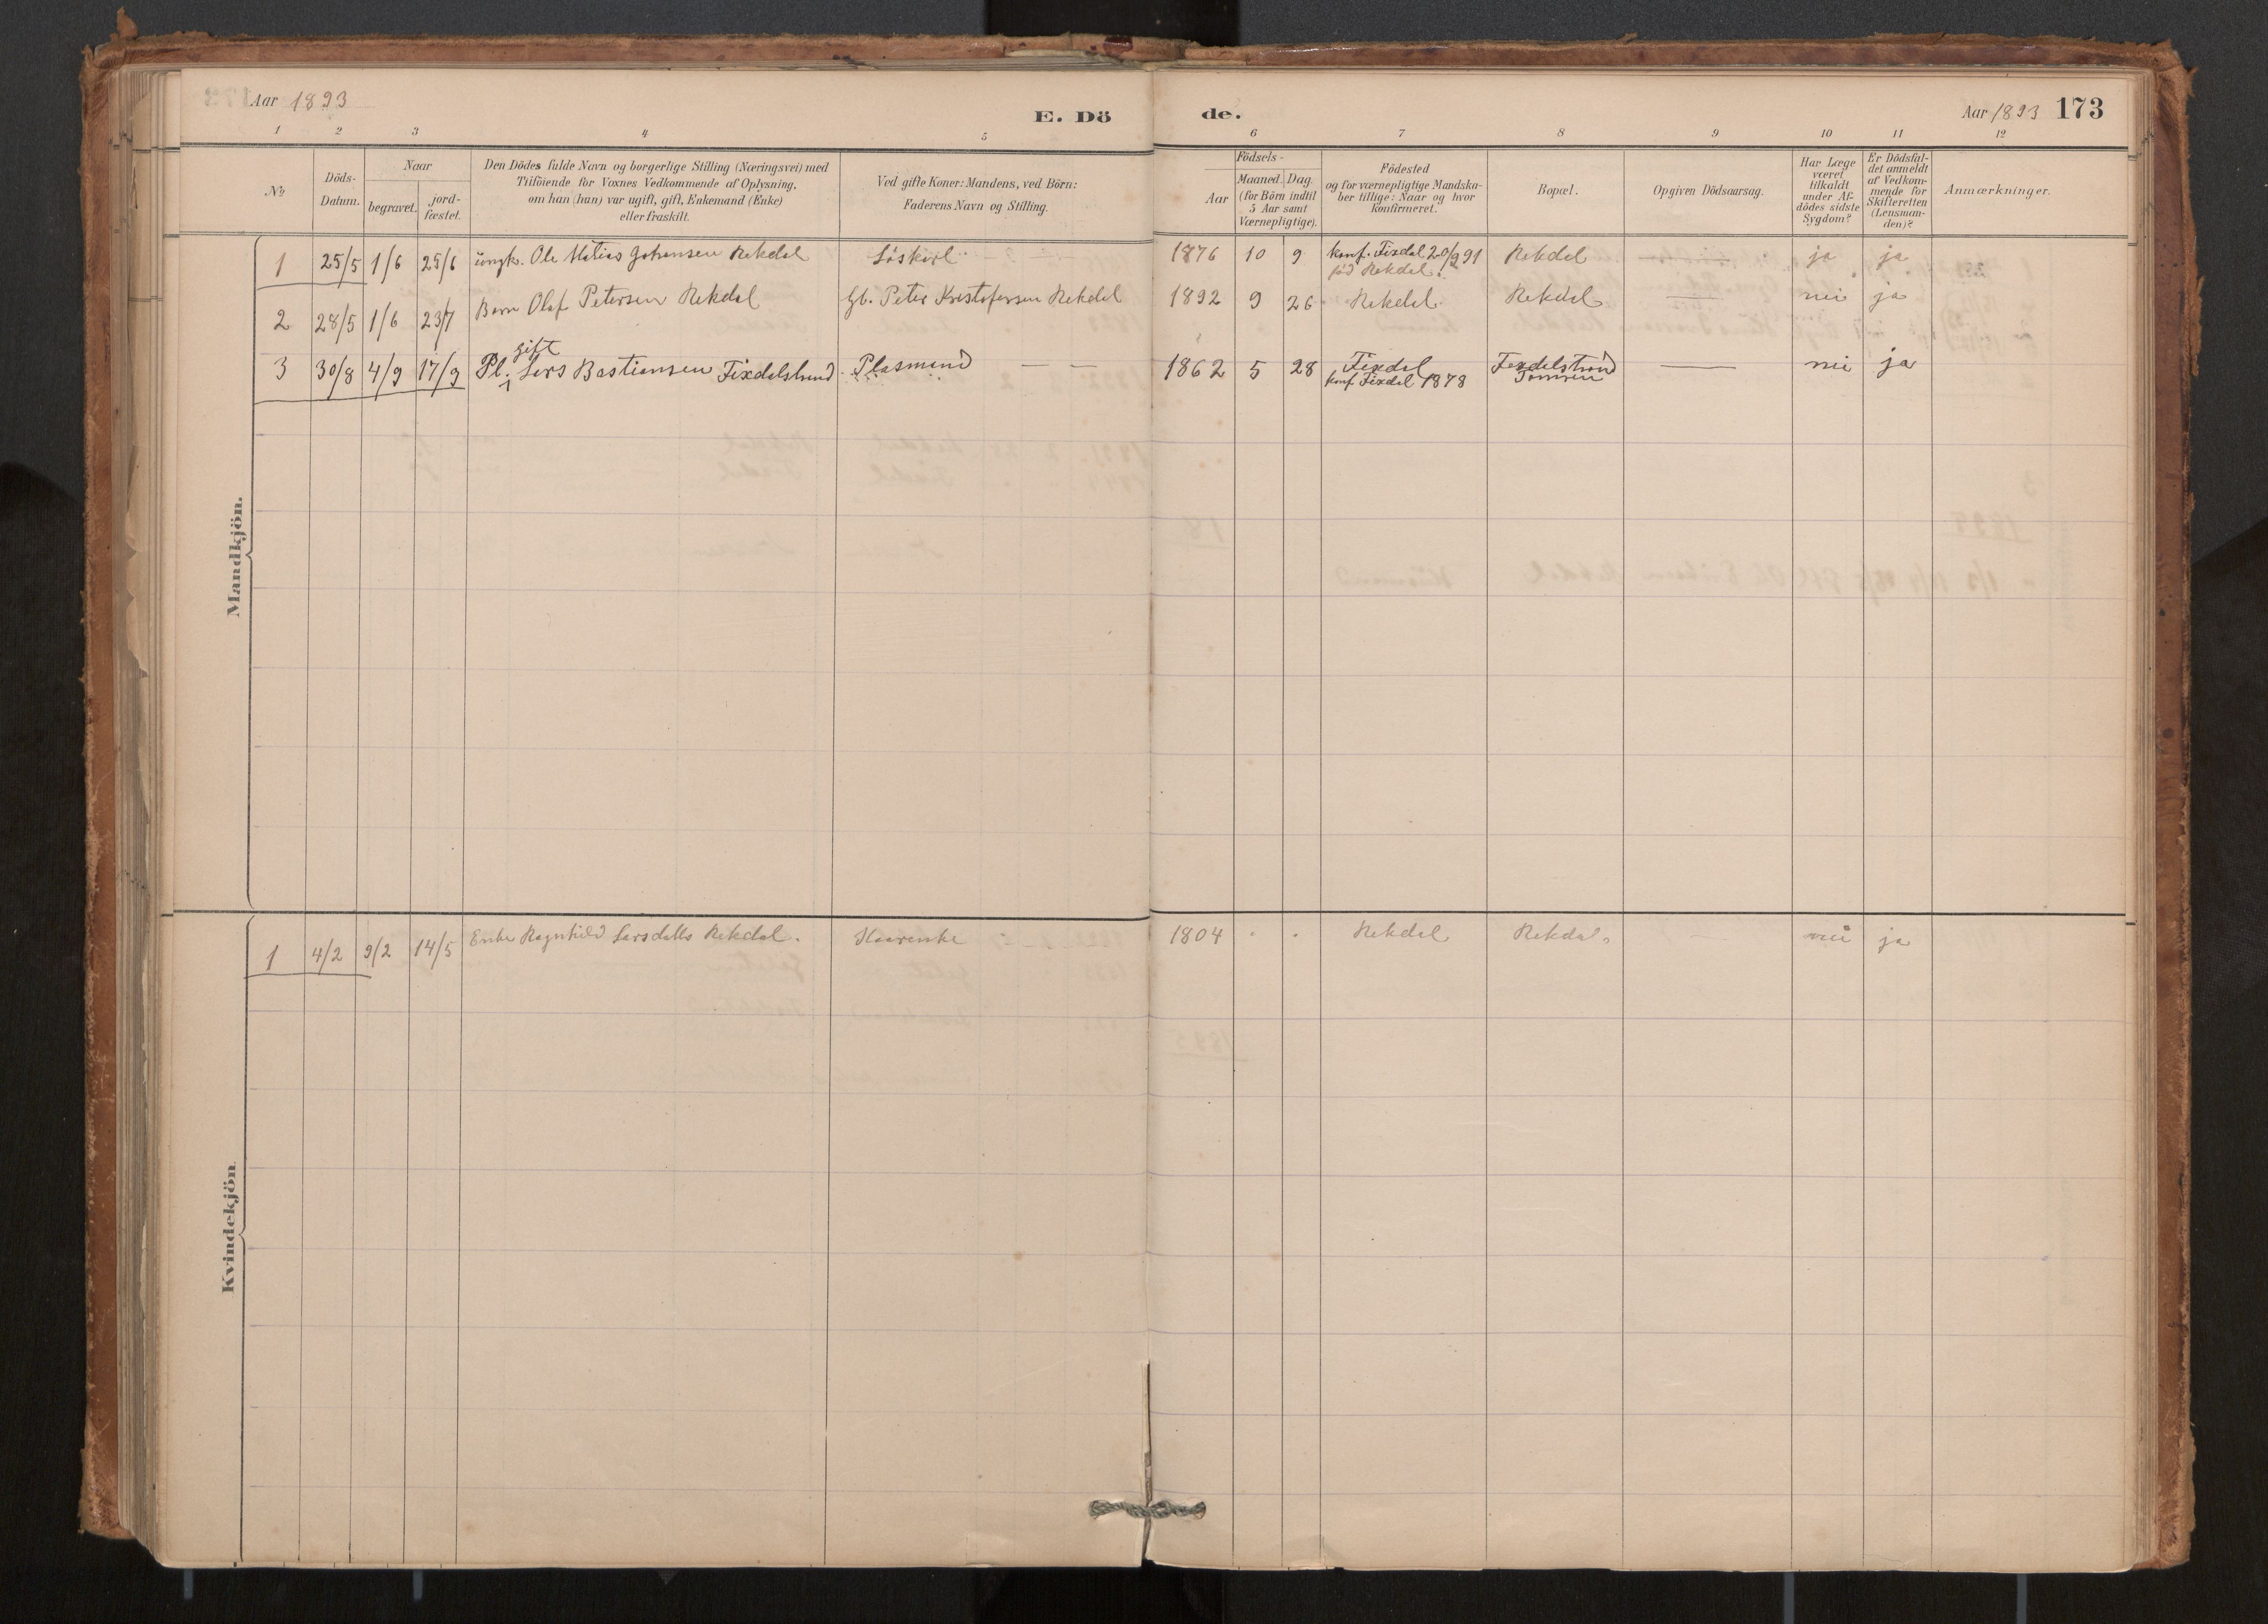 Aar 1893
E. Dö
de.
Aar 1893 173
1 2 3 4 5 6 7 8 9 10 11 12
No
Döds-
Datum.
Naar
begravet.
jord-
fæstet.
Den Dödes fulde Navn og borgerlige Stilling (Næringsvei) med
Tilföiende for Voxnes Vedkommende af Oplysning,
om han (hun) var ugift, gift, Enkemand (Enke)
eller fraskilt.
Ved gifte Koner: Mandens, ved Börn:
Faderens Navn og Stilling.
Födsels-
Aar
Maaned. Dag.
(for Börn indtil
5 Aar samt
Værnepligtige).
Födested
og for værnepligtige Mandska-
ber tillige: Naar og hvor
konfirmeret.
Bopæl.
Opgiven Dödsaarsag.
Har Læge
været
tilkaldt
under Af-
dödes sidste
Sygdom?
Er Dödsfal-
det anmeldt
af Vedkom-
mende for
Skifteretten
(Lensman-
den)?
Anmærkninger.
Mandkjön.
1 25/5 1/6 25/6 ungk. Ole Matias Johansen Rekdal Löskarl 1876 10 9 konf. Fixdal 20/9 91 Rekdal — ja ja
föd Rekdal.
2 28/5 1/6 23/7 Barn Olaf Petersen Rekdal Gb. Peter Kristofersen Rekdal 1892 9 26 Rekdal Rekdal — nei ja
gift
3 30/8 4/9 17/9 Pl. Lars Bastiansen Fixdalstrand Plasmand — — 1862 5 28 Fixdal Fixdalstrand — nei ja
konf Fixdal 1878
Kvindekjön
1 4/2 9/2 14/5 Enke Ragnhild Larsdatter Rekdal. Kaarenke 1804 Rekdal Rekdal. — nei ja